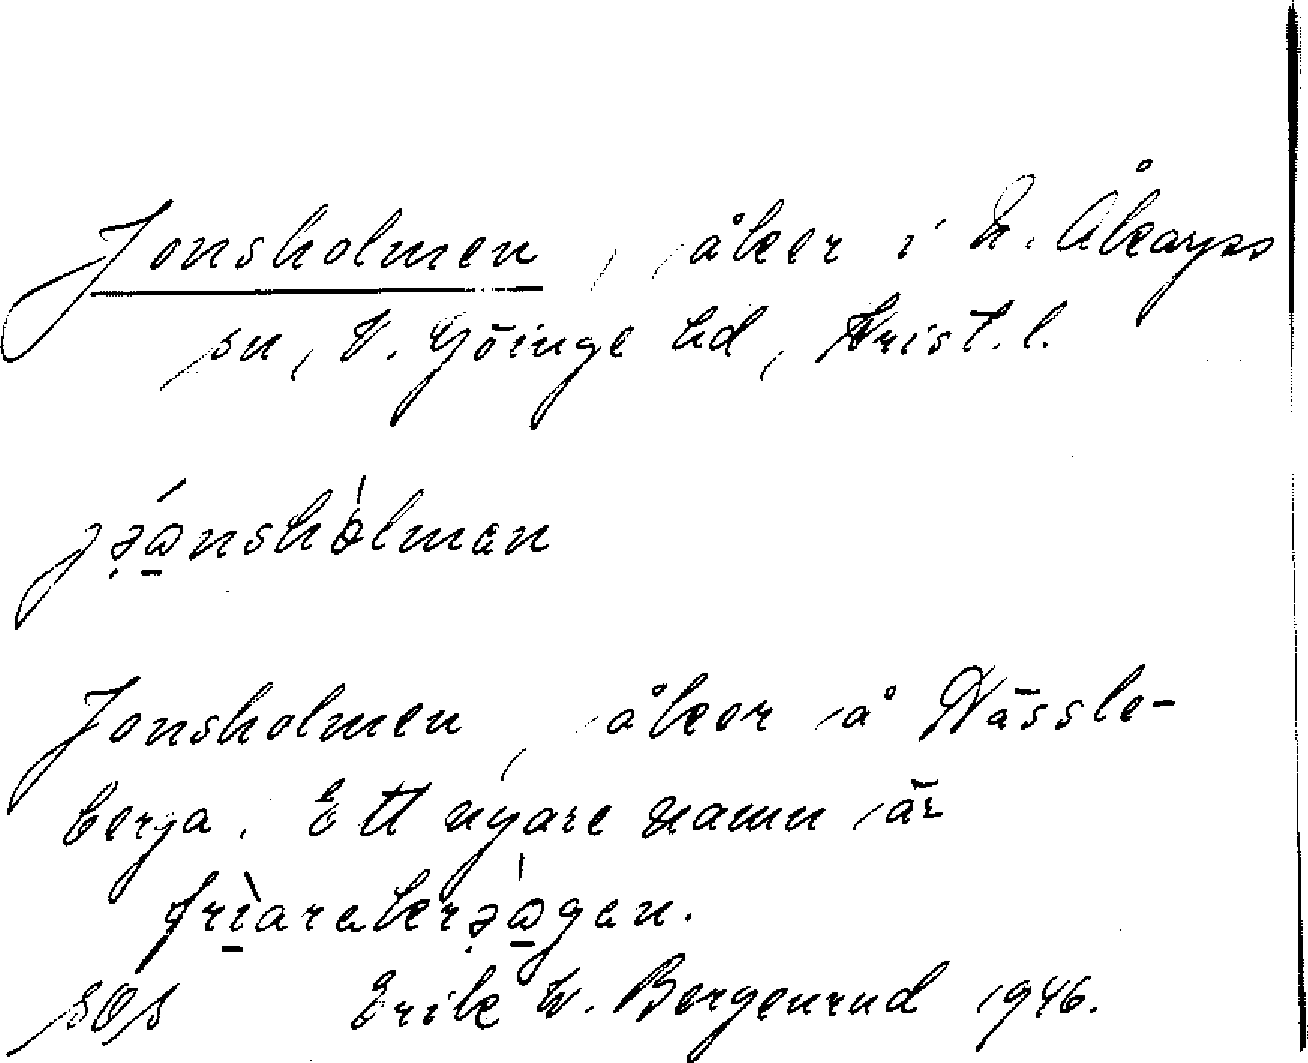 Jonsholmen, åker i N. Åkarps
sn, V. Göinge hd, Krist. l.
jə̣ώ̲nshòlmən
Jonsholmen, åker å Nässle-
berga. Ett nyare namn är
frì̲arəkrə̣ὼ̲gən.
SOS Erik W. Bergenrud 1946.